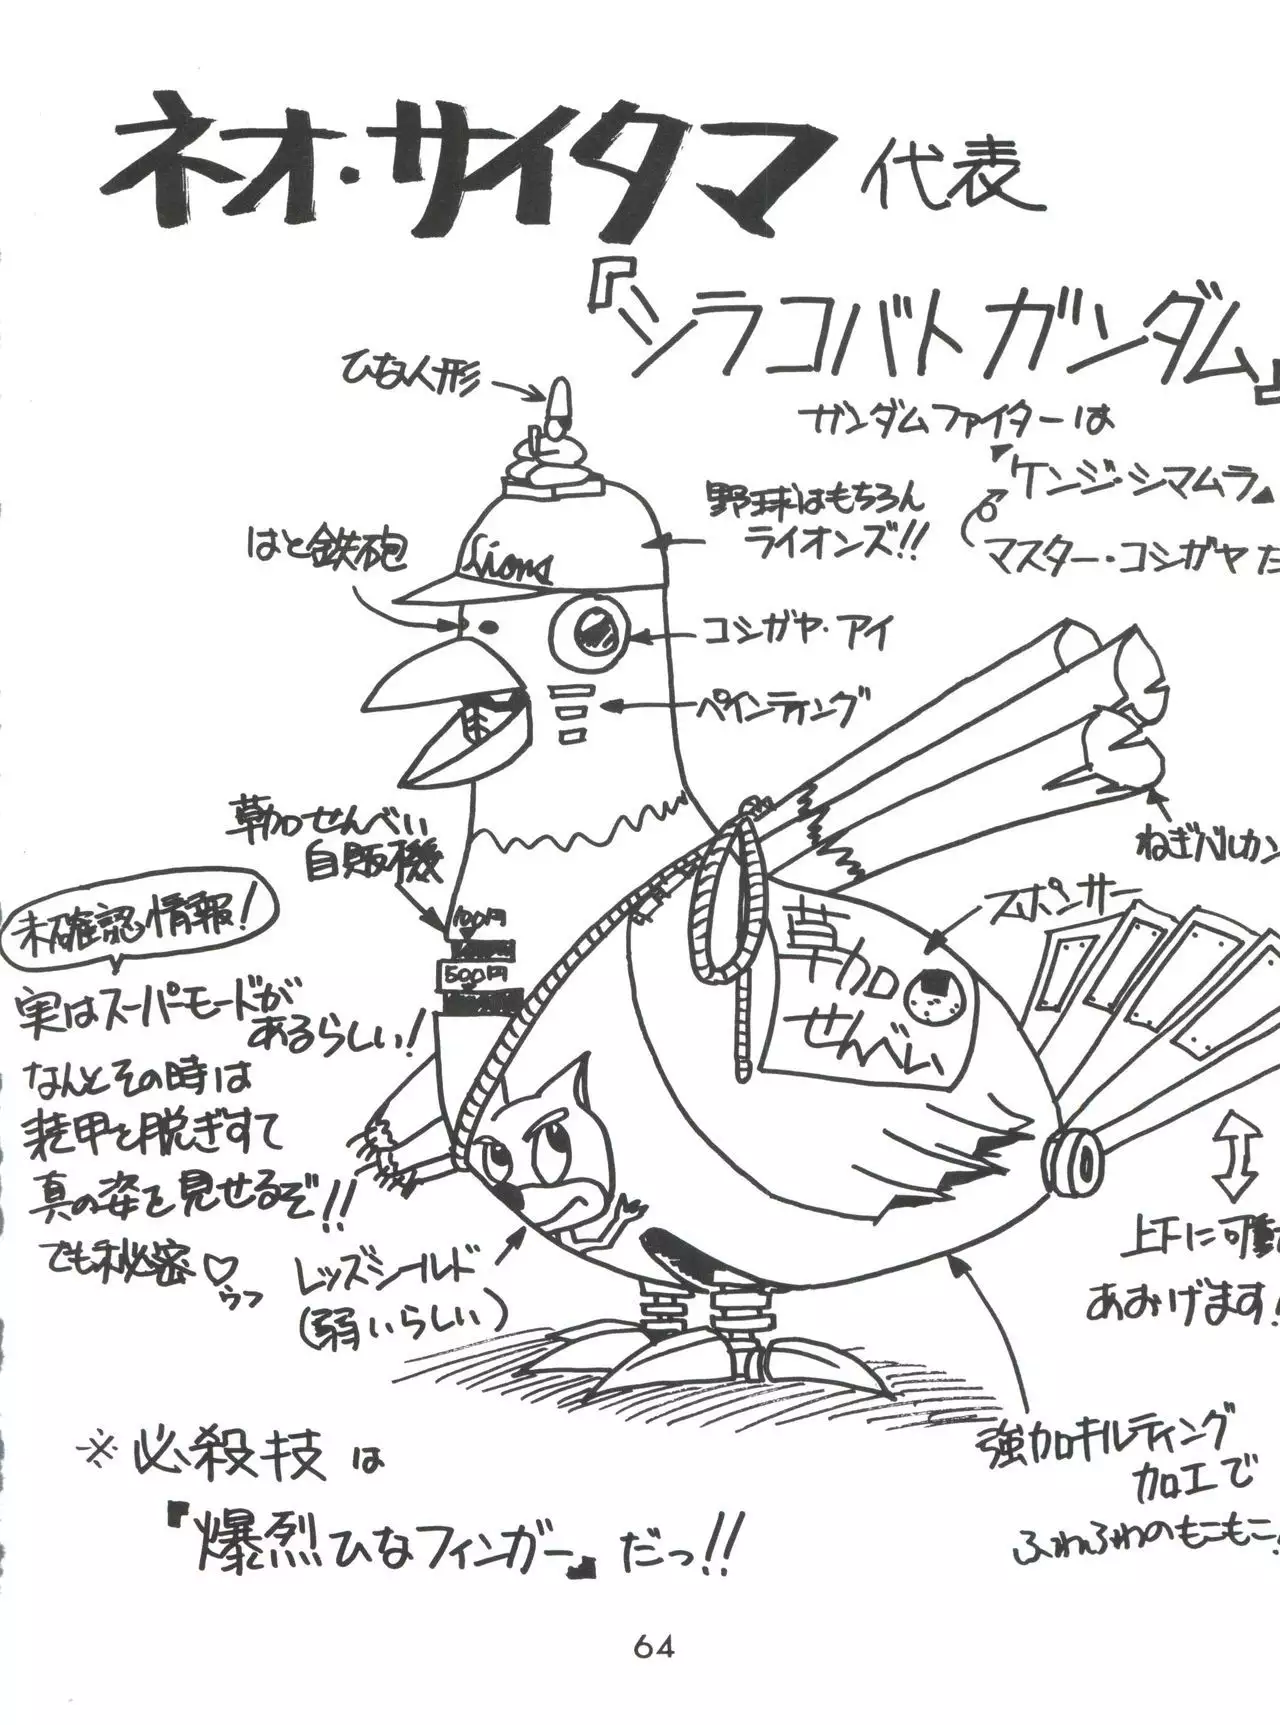 ネオ・サイタマ 代表
『シラコバトガンダム』
ガンダムファイターは
『ケンジ・シマムラ』
マスター・コシガヤ だ
ひな人形
野球はもちろん
ライオンズ!!
はと鉄砲
Lions
コシガヤ・アイ
ペインティング
草加せんべい
自販機
100円
500円
ねぎバルカン
スポンサー
草加
せんべい
未確認情報!
実はスーパーモードが
あるらしい!
なんとその時は
装甲を脱ぎすて
真の姿を見せるぞ!!
でも秘密♡
ウフ
レッズシールド
(弱いらしい)
上下に可動
あおげます!
強加キルティング
加工で
ふわふわのもこもこ!
※必殺技は
『爆烈ひなフィンガー』だっ!!
64